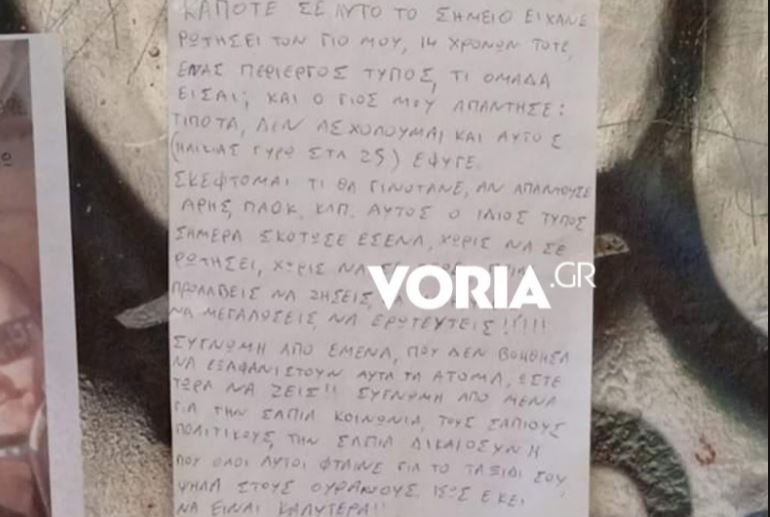 ΚΑΠΟΤΕ ΣΕ ΑΥΤΟ ΤΟ ΣΗΜΕΙΟ ΕΙΧΑΝΕ
ΡΩΤΗΣΕΙ ΤΟΝ ΓΙΟ ΜΟΥ, 14 ΧΡΟΝΩΝ ΤΟΤΕ,
ΕΝΑΣ ΠΕΡΙΕΡΓΟΣ ΤΥΠΟΣ, ΤΙ ΟΜΑΔΑ
ΕΙΣΑΙ; ΚΑΙ Ο ΓΙΟΣ ΜΟΥ ΑΠΑΝΤΗΣΕ:
ΤΙΠΟΤΑ, ΔΕΝ ΑΣΧΟΛΟΥΜΑΙ ΚΑΙ ΑΥΤΟΣ
(ΗΛΙΚΙΑΣ ΓΥΡΩ ΣΤΑ 25) ΕΦΥΓΕ.
ΣΚΕΦΤΟΜΑΙ ΤΙ ΘΑ ΓΙΝΟΤΑΝΕ, ΑΝ ΑΠΑΝΤΟΥΣΕ
ΑΡΗΣ, ΠΑΟΚ, ΚΛΠ. ΑΥΤΟΣ Ο ΙΔΙΟΣ ΤΥΠΟΣ
ΣΗΜΕΡΑ ΣΚΟΤΩΣΕ ΕΣΕΝΑ, ΧΩΡΙΣ ΝΑ ΣΕ
ΡΩΤΗΣΕΙ, ΧΩΡΙΣ ΝΑ
VORIA.GR
ΠΡΟΛΑΒΕΙΣ ΝΑ ΖΗΣΕΙΣ,
ΝΑ ΜΕΓΑΛΩΣΕΙΣ, ΝΑ ΕΡΩΤΕΥΤΕΙΣ!!!!!!
ΣΥΓΝΩΜΗ ΑΠΟ ΕΜΕΝΑ, ΠΟΥ ΔΕΝ ΒΟΗΘΗΣΑ
ΝΑ ΕΞΑΦΑΝΙΣΤΟΥΝ ΑΥΤΑ ΤΑ ΑΤΟΜΑ, ΩΣΤΕ
ΤΩΡΑ ΝΑ ΖΕΙΣ!! ΣΥΓΝΩΜΗ ΑΠΟ ΜΕΝΑ
ΓΙΑ ΤΗΝ ΣΑΠΙΑ ΚΟΙΝΩΝΙΑ, ΤΟΥΣ ΣΑΠΙΟΥΣ
ΠΟΛΙΤΙΚΟΥΣ, ΤΗΝ ΣΑΠΙΑ ΔΙΚΑΙΟΣΥΝΗ
ΠΟΥ ΟΛΟΙ ΑΥΤΟΙ ΦΤΑΙΝΕ ΓΙΑ ΤΟ ΤΑΞΙΔΙ ΣΟΥ
ΨΗΛΑ ΣΤΟΥΣ ΟΥΡΑΝΟΥΣ. ΙΣΩΣ ΕΚΕΙ
ΝΑ ΕΙΝΑΙ ΚΑΛΥΤΕΡΑ!!